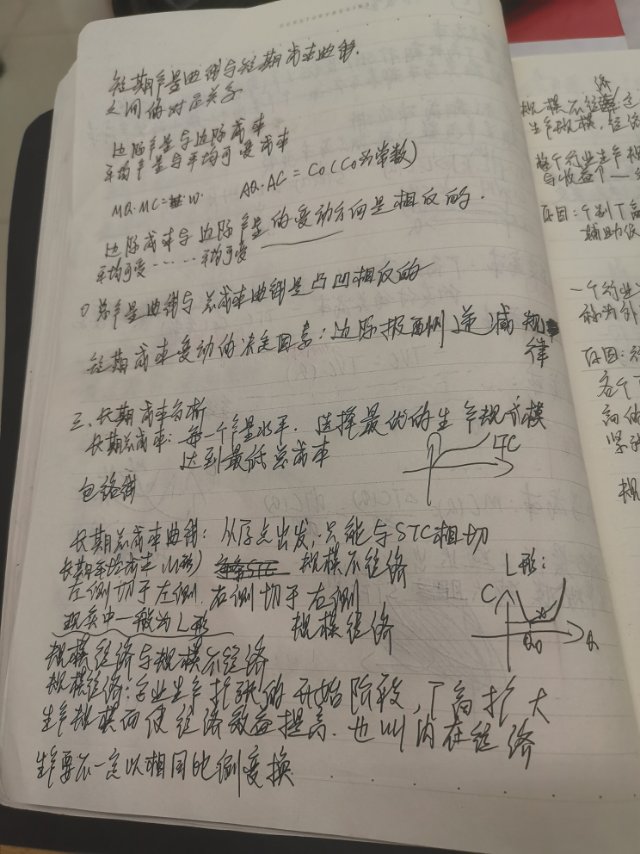 短期产量曲线与短期成本曲线
之间的对应关系
边际产量与边际成本
平均产量与平均可变成本
MQ·MC=
AQ·AC = C₀(C₀为常数)
边际成本与边际产量的变动方向是相反的.
平均可变……平均可变
① 总产量曲线与总成本曲线是凸凹相反的
短期成本变动的决定因素：边际报酬递减规
律
三、长期成本分析
长期总成本：每一个产量水平，选择最优的生产规模
达到最低总成本
LTC
包络线
长期总成本曲线：从原点出发，只能与STC相切
长期平均成本(U形) 规模不经济
左侧切于左侧，右侧切于右侧
L形：
C
Q₀
Q
现实中一般为L形 规模经济
规模经济与规模不经济
规模经济：企业生产扩张的开始阶段，厂商扩大
生产规模而使经济效益提高，也叫内在经济
生产要不一定以相同比例变换
规模不经济
生产规模，经济
每个行业生产规
原因：个别厂商
辅助
一个行业
称为外
原因：
各个厂